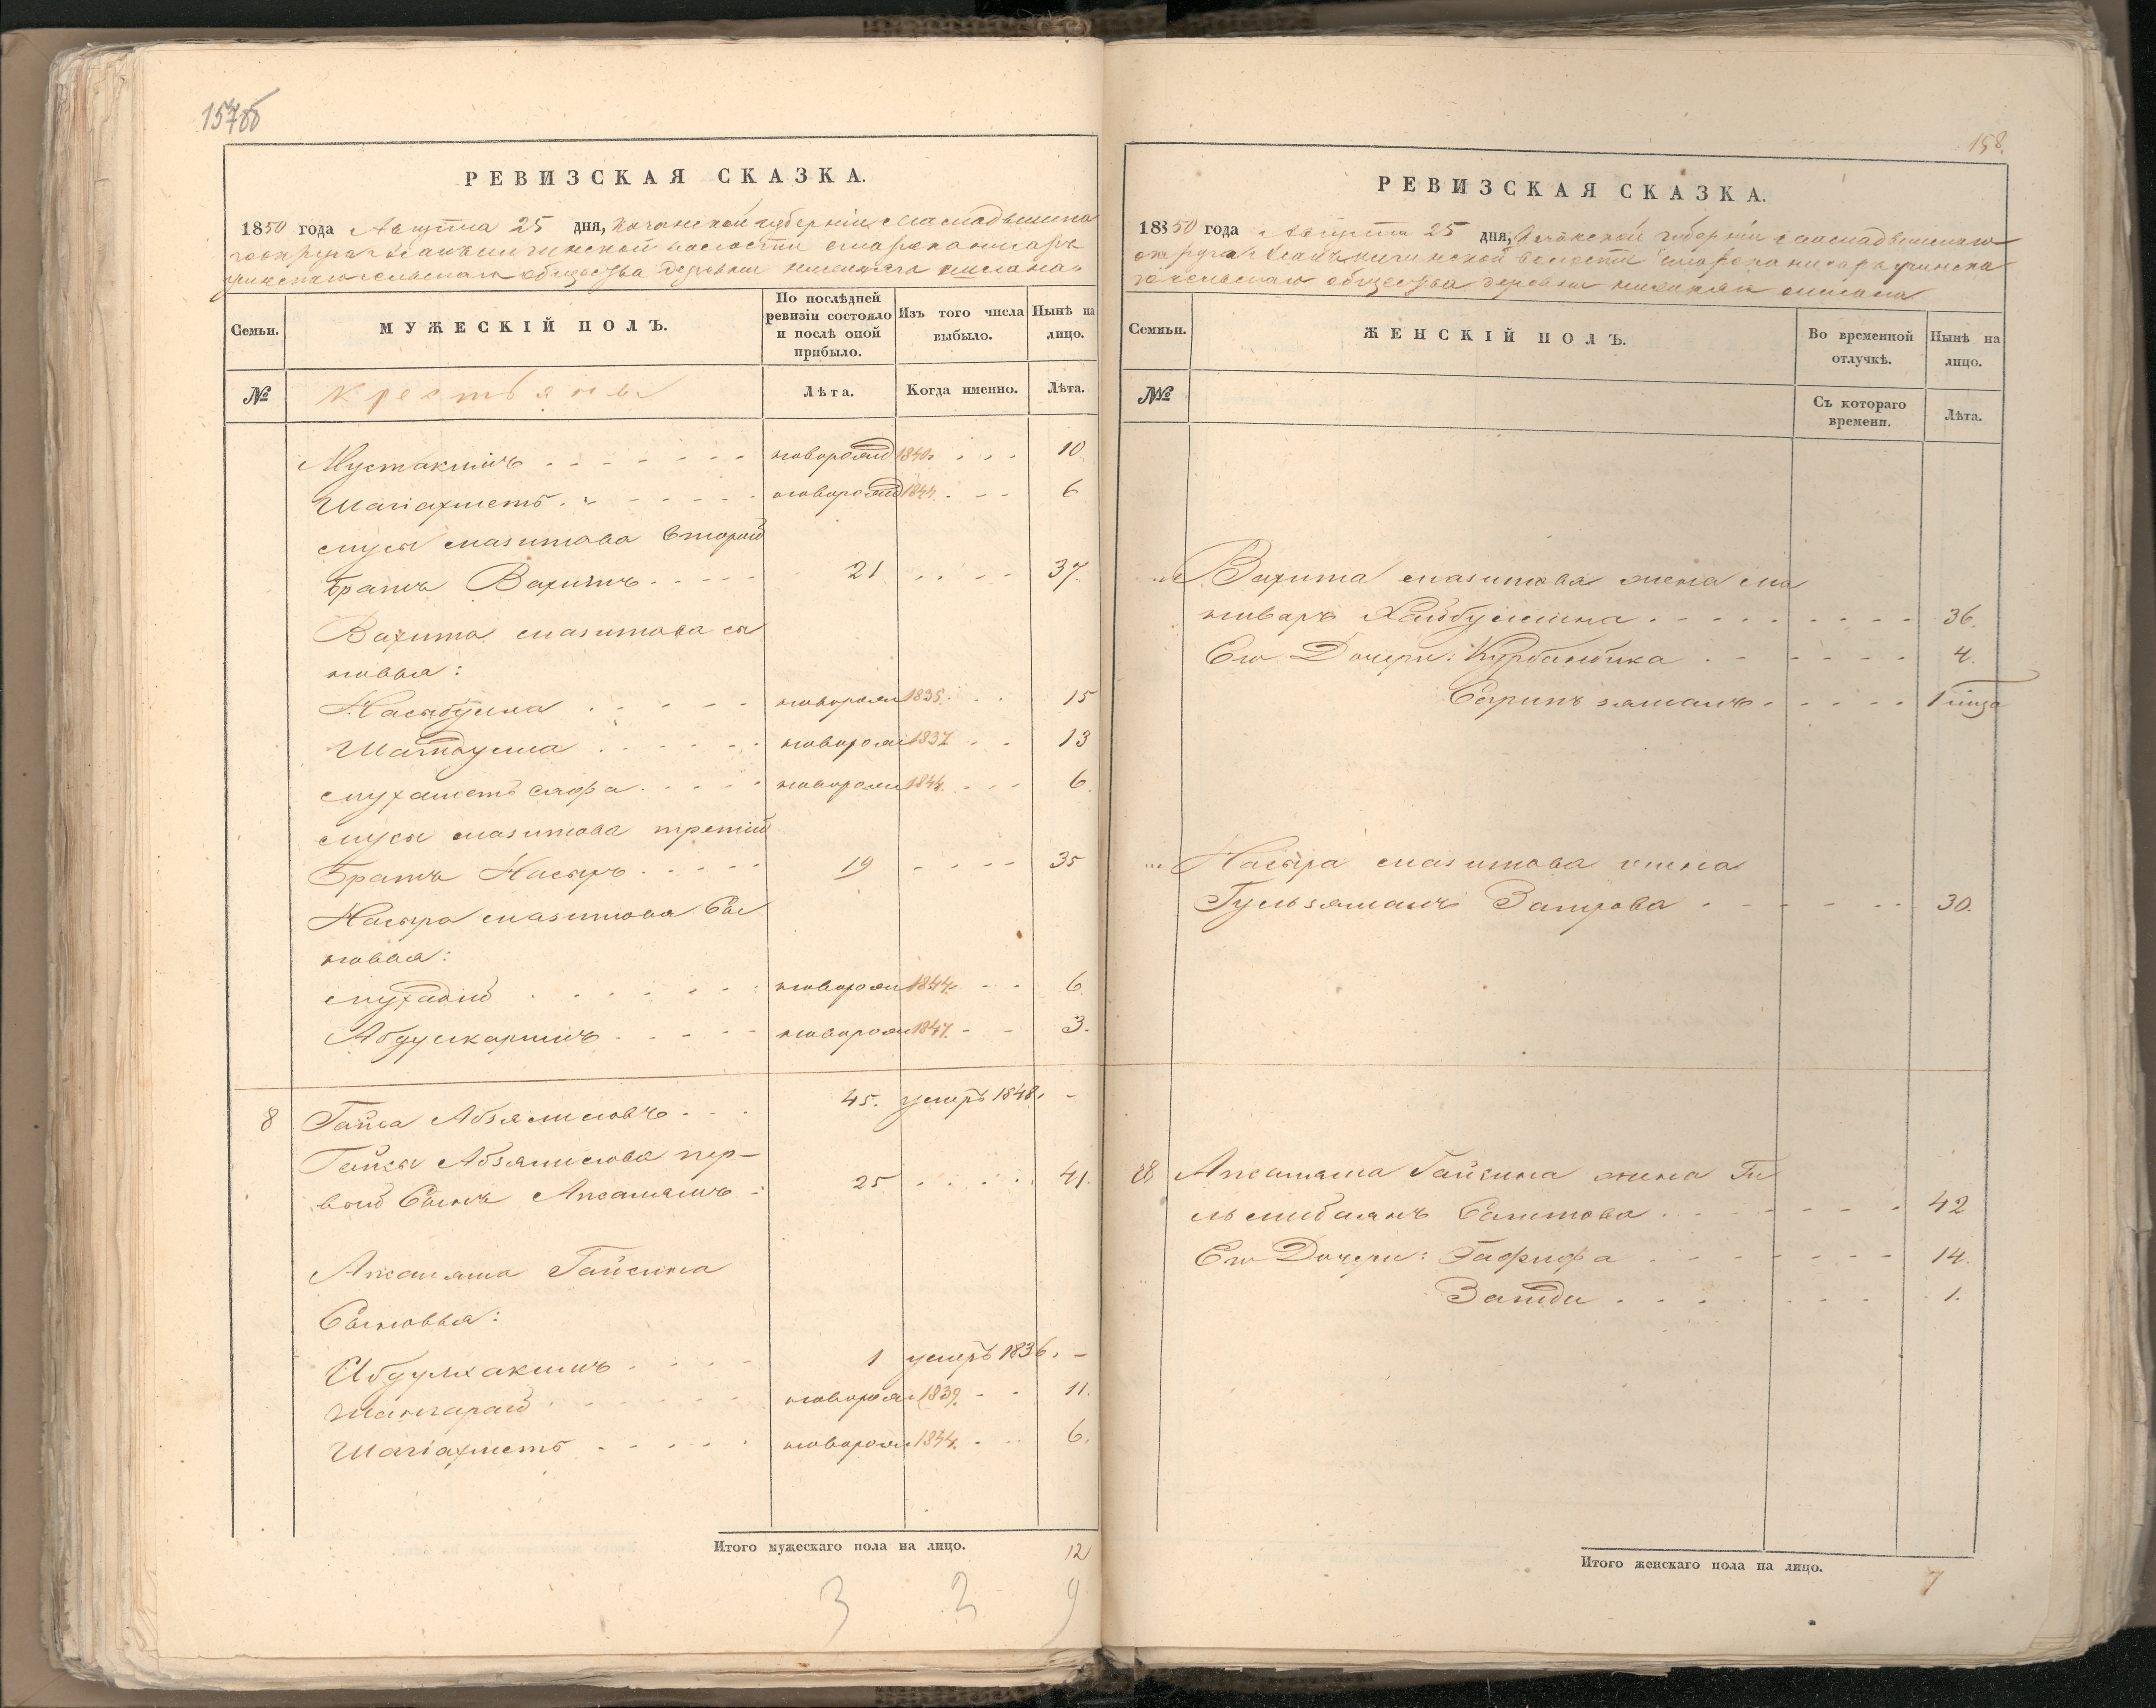 157об
РЕВИЗСКАЯ СКАЗКА.
1850 года Августа 25 дня, Казанской губерніи Мамадышска
го округа
сельскаго общества деревни
Семьи.
МУЖЕСКІЙ ПОЛЪ.
По послѣдней ревизіи состояло и послѣ оной прибыло.
Изъ того числа выбыло.
Нынѣ на лицо.
№
Крестьяне
Лѣта.
Когда именно.
Лѣта.
Мустакимъ новорожд 1840. 10
Шагіахметъ новорожд 1844. 6
Мусы Мазитова второй
братъ Вахитъ 21 37.
Вахита Мазитова сы
новья:
Насыбулла новорож 1835. 15
новорож 1837 13
Мухаметъ Сафа новорож 1844. 6.
Мусы Мазитова третій
братъ Насыръ 19 35
Насыра Мазитова Сы
новья:
Мухадій новорож 1844. 6
Абдулкаримъ новорож 1847. 3.
8 Гайса Абзялиловъ 45. умеръ 1848. -
Гайсы Абзялилова пер-
вый Сынъ Апсалямъ 25 41.
Апсаляма Гайсина
Сыновья:
Абдулхакимъ 1 умеръ 1836. -
Шангарай новорож 1839. 11.
Шагіахметъ новорож 1844. 6.
Итого мужескаго пола на лицо. 12
3 3 9
158.
РЕВИЗСКАЯ СКАЗКА.
1850 года Августа 25 дня, Казанской губерніи Мамадышскаго
округа
сельскаго общества деревни
Семьи.
ЖЕНСКІЙ ПОЛЪ.
Во временной отлучкѣ.
Нынѣ на лицо.
№
Съ котораго времени.
Лѣта.
Вахита Мазитова жена Ма
нваръ Хайбуллина 36.
Его Дочери: Курбанбика 4.
1
Насыра Мазитова жена
Гульзямалъ Заитова 30.
8 Апсаляма Гайсина жена Ги
льмибаянъ Сагитова 42
Его Дочери: Гафифа 14.
1.
Итого женскаго пола на лицо.
7